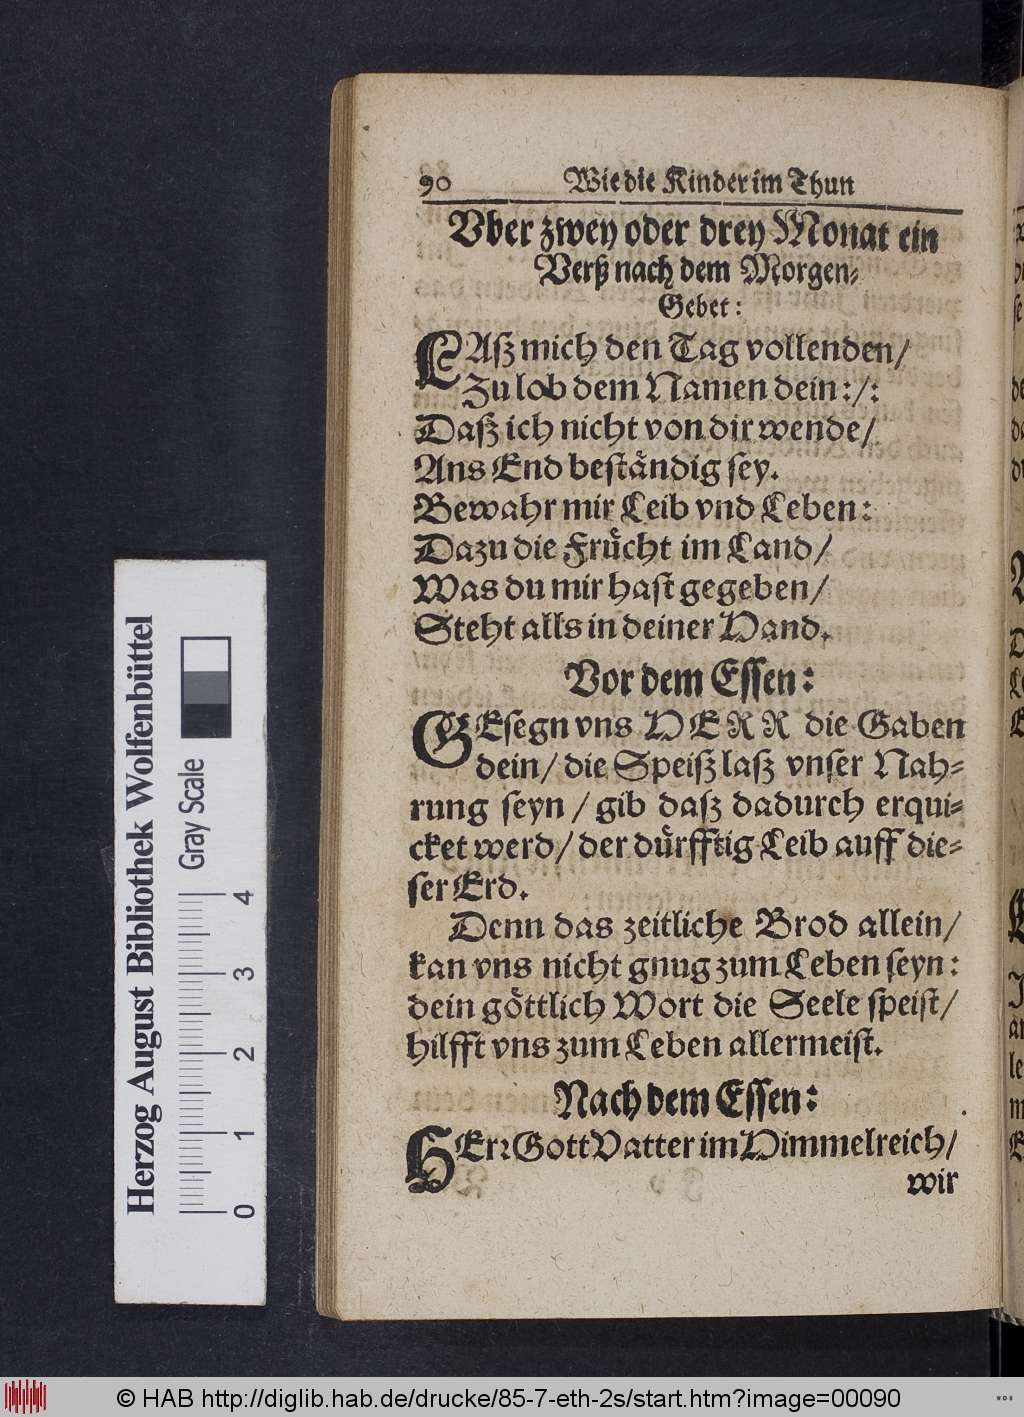 90 Wie die Kinder im Thun
Vber zwey oder drey Monat ein
Verß nach dem Morgen-
Gebet:
LAß mich den Tag vollenden/
Zu lob dem Namen dein:/:
Daß ich nicht von dir wende/
Ans End beständig sey.
Bewahr mir Leib vnd Leben:
Dazu die Frücht im Land/
Was du mir hast gegeben/
Steht alls in deiner Hand.
Vor dem Essen:
GEsegn vns HERR die Gaben
dein/ die Speiß laß vnser Nah-
rung seyn / gib daß dadurch erqui-
cket werd/ der dürfftig Leib auff die-
ser Erd.
Denn das zeitliche Brod allein/
kan vns nicht gnug zum Leben seyn:
dein göttlich Wort die Seele speist/
hilfft vns zum Leben allermeist.
Nach dem Essen:
HErꝛ Gott Vatter im Himmelreich/
wir
Herzog August Bibliothek Wolfenbüttel
Gray Scale
0 1 2 3 4
© HAB http://diglib.hab.de/drucke/85-7-eth-2s/start.htm?image=00090